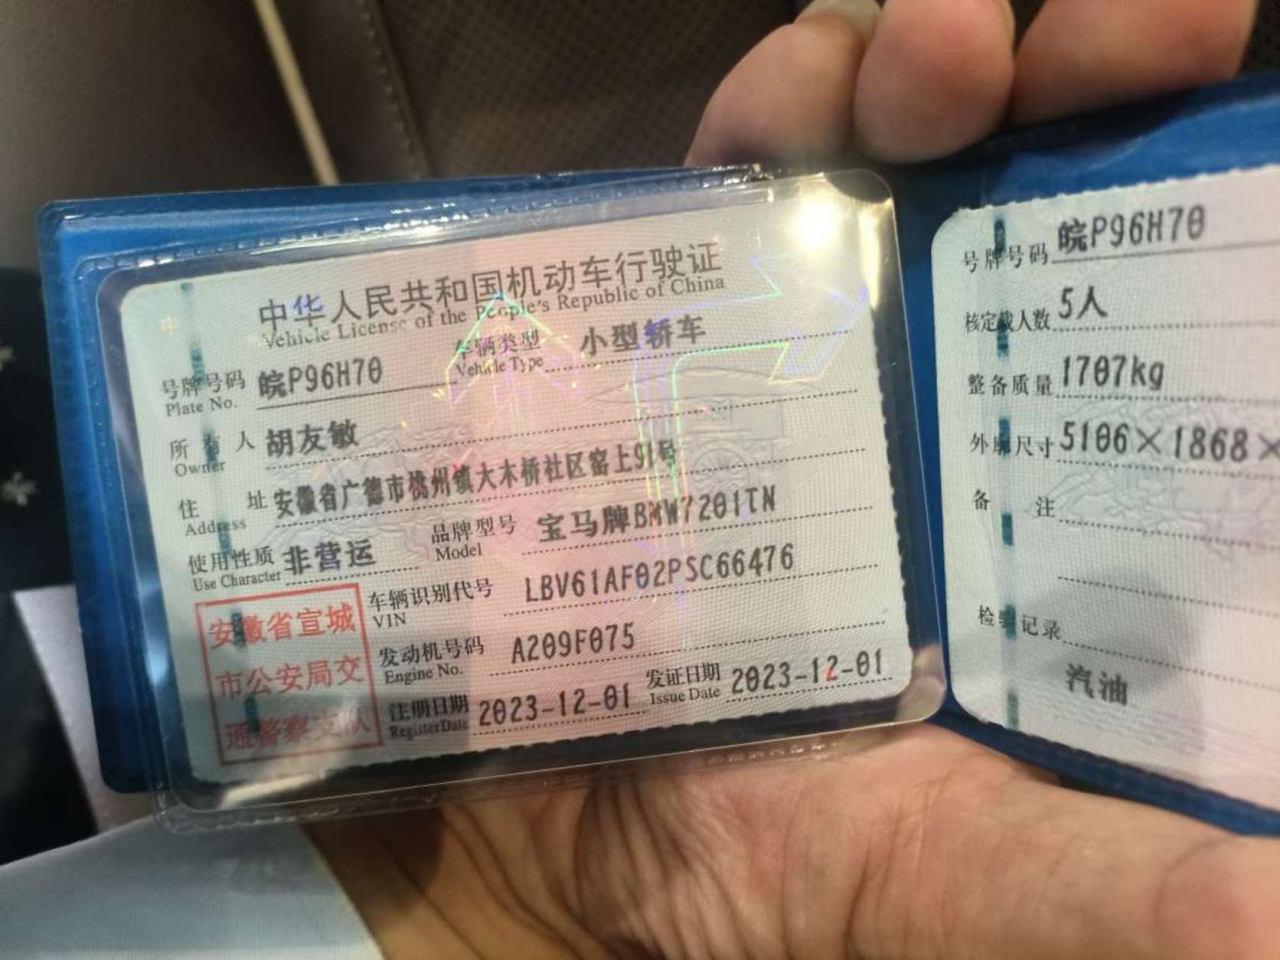 中华人民共和国机动车行驶证
Vehicle License of the People's Republic of China
号牌号码 皖P96H70 车辆类型 小型轿车
Plate No. Vehicle Type
所有人 胡友敏
Owner
住址 安徽省广德市桃州镇大木桥社区窑上91号
Address
使用性质 非营运 品牌型号 宝马牌BMW7201TN
Use Character Model
车辆识别代号 LBV61AF02PSC66476
VIN
发动机号码 A209F075
Engine No.
注册日期 2023-12-01 发证日期 2023-12-01
Register Date Issue Date
安徽省宣城
市公安局交
通警察支队
号牌号码 皖P96H70
核定载人数 5人
整备质量 1707kg
外廓尺寸 5106×1868×
备注
检验记录
汽油